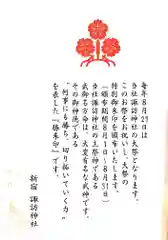 毎年8月27日は
当社諏訪神社の大祭となります。
このお祭をお祝いし、大祭の
特別御朱印を頒布いたします。
『頒布期間8月1日〜8月31日』
当社諏訪神社の主祭神である
武御名方命は、大変有名な武神です。
その御神徳である
"何事にも勝ち、切り拓いていく力"
を表した『勝朱印』です。
新宿 諏訪神社